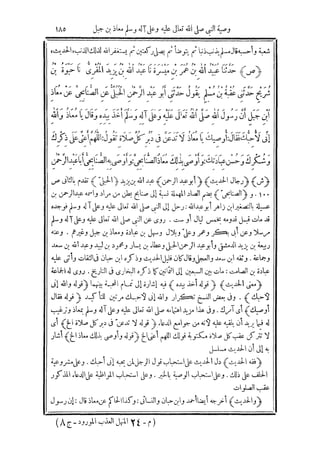 وصية النبى صلى الله تعالى عليه وعلى آله وسلم معاذ بن جبل ١٨٥
شعبة وأحسبه قال مسلم يذنب ذنبا ثم يتوضأ ثم يصلى ركعتين ثم يستغفر الله لذلك الذنب «الحديث»
﴿ص﴾ حَدَّثَنَا عُبَيْدُ اللهِ بْنُ عُمَرَ بْنِ مَيْسَرَةَ نَا عَبْدُ اللهِ بْنُ يَزِيدَ الْمُقْرِئُ نَا حَيْوَةُ بْنُ
شُرَيْحٍ حَدَّثَنِي عُقْبَةُ بْنُ مُسْلِمٍ يَقُولُ حَدَّثَنِي أَبُو عَبْدِ الرَّحْمٰنِ الْحُبُلِيُّ عَنِ الصُّنَابِحِيِّ عَنْ مُعَاذِ
ابْنِ جَبَلٍ أَنَّ رَسُولَ اللهِ صَلَّى اللهُ تَعَالَى عَلَيْهِ وَعَلَى آلِهِ وَسَلَّمَ أَخَذَ بِيَدِهِ وَقَالَ يَا مُعَاذُ وَاللهِ
إِنِّي لَأُحِبُّكَ فَقَالَ: أُوصِيكَ يَا مُعَاذُ لَا تَدَعَنَّ فِي دُبُرِ كُلِّ صَلَاةٍ تَقُولُ: اللّٰهُمَّ أَعِنِّي عَلَى ذِكْرِكَ
وَشُكْرِكَ وَحُسْنِ عِبَادَتِكَ وَأَوْصَى بِذٰلِكَ مُعَاذٌ الصُّنَابِحِيَّ وَأَوْصَى بِهِ الصُّنَابِحِيُّ أَبَا عَبْدِ الرَّحْمٰنِ
﴿ش﴾ ﴿رجال الحديث﴾ ﴿أبو عبد الرحمن﴾ عبد الله بن يزيد ﴿الحبلى﴾ تقدم بالثانى ص
١٠٠. و ﴿الصنابحى﴾ بضم الصاد المهملة نسبة إلى صنابح بطن من مراد واسمه عبد الرحمن بن
عسيلة بالتصغير ابن زاهر أبو عبد الله: رحل إلى النبى صلى الله تعالى عليه وعلى آله وسلم فوجده
قد مات قبل قدومه بخمس ليال أو ست. روى عن النبى صلى الله تعالى عليه وعلى آله وسلم
مرسلا وعن أبى بكر وعمر وعلى وبلال وسهل بن عبادة ومعاذ بن جبل وغيرهم. وعنه
ربيعة بن يزيد الدمشقى وأبو عبد الرحمن الحبلى وعطاء بن يسار ومحمود بن لبيد وعبد الله بن سعد
وجماعة. وثقه ابن سعد والعجلى وقال كان قليل الحديث وذكره ابن حبان فى الثقات وأثنى عليه
عبادة بن الصامت: مات بين السبعين إلى الثمانين كما ذكره البخارى فى التاريخ. روى له الجماعة
﴿معنى الحديث﴾ ﴿قوله أخذ بيده﴾ فيه إشارة إلى تمام المحبة بينهما ﴿قوله والله إنى
لأحبك﴾. وفى بعض النسخ تكرار والله إنى لأحبك مرتين للتأكيد ﴿قوله فقال
أوصيك﴾ أى آمرك. وفى هذا مزيد اهتمامه صلى الله تعالى عليه وعلى آله وسلم بمعاذ وترغيب
له فيما يريد أن يلقيه عليه لأنه من جوامع الدعاء. ﴿قوله لا تدعن فى دبر كل صلاة الخ﴾ أى
لا تتركن عقب كل صلاة مكتوبة قولك اللهم أعنى الخ ﴿قوله وأوصى بذلك معاذ الخ﴾ أشار
به إلى أن الحديث مسلسل
﴿فقه الحديث﴾ دل الحديث على استحباب قول الرجل لمن يحبه إنى أحبك. وعلى مشروعية
الحلف على ذلك. وعلى استحباب الوصية بالخير. وعلى استحباب المواظبة على الدعاء المذكور
عقب الصلوات
﴿والحديث﴾ أخرجه أيضا أحمد وابن حبان والنسائى: وكذا الحاكم عن معاذ قال: إن رسول
(م - ٢٤ المنهل العذب المورود - ج ٨)